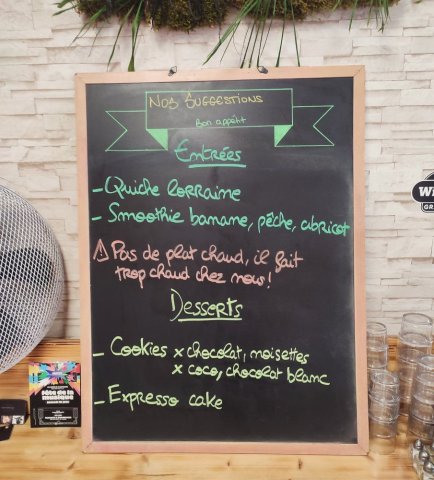 Nos Suggestions
Bon appétit
Entrées
- Quiche lorraine
- Smoothie banane, pêche, abricot
⚠ Pas de plat chaud, il fait
trop chaud chez nous!
Desserts
- Cookies x chocolat, noisettes
x coco, chocolat blanc
- Expresso cake
Fête de la
musique